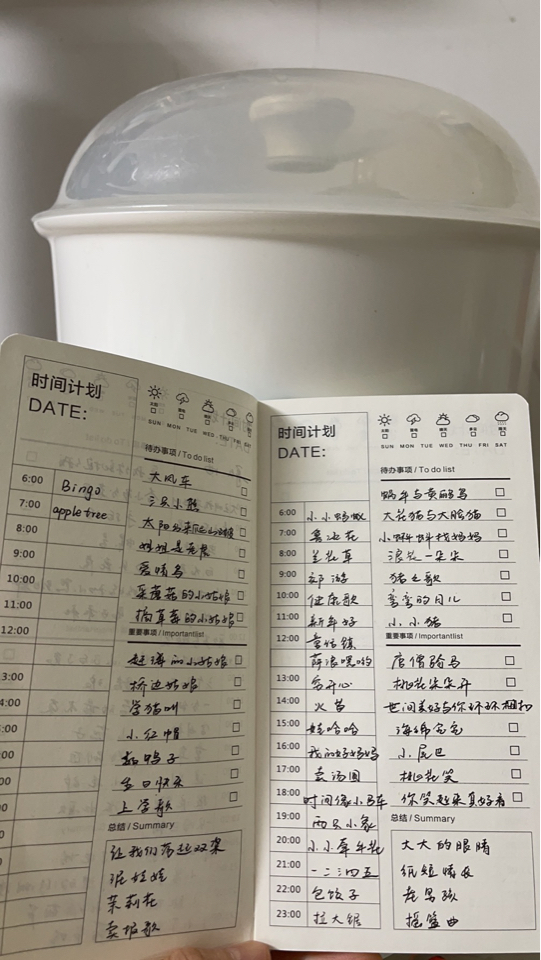 时间计划
DATE:
SUN MON TUE WED THU FRI SAT
待办事项 / To do list
6:00 Bingo
7:00 apple tree
8:00
9:00
10:00
11:00
12:00
3:00
4:00
大风车
三只小熊
太阳出来
爱唱鸟
采蘑菇的小姑娘
摘草莓的小姑娘
重要事项 / Important list
赶海的小姑娘
桥边姑娘
学猫叫
小红帽
数鸭子
生日快乐
上学歌
总结 / Summary
让我们荡起双桨
泥娃娃
茉莉花
卖报歌
时间计划
DATE:
SUN MON TUE WED THU FRI SAT
6:00 小小蚂蚁
7:00 鲁冰花
8:00 兰花草
9:00 郊游
10:00 健康歌
11:00 新年好
12:00
薛浪嘿哟
13:00 多开心
14:00
15:00 娃哈哈
16:00 我的好妈妈
17:00 卖汤圆
18:00 时间像小马车
19:00 两只小象
20:00 小小牵牛花
21:00 一二三四五
22:00 包饺子
23:00 拉大锯
待办事项 / To do list
蜗牛与黄鹂鸟
大花猫与大脸猫
小蝌蚪找妈妈
浪花一朵朵
猪之歌
弯弯的月儿
小小猪
重要事项 / Important list
唐僧骑马
桃花朵朵开
世间美好与你环环相扣
海绵宝宝
小尾巴
桃花笑
你笑起来真好看
总结 / Summary
大大的眼睛
纸短情长
老男孩
摇篮曲